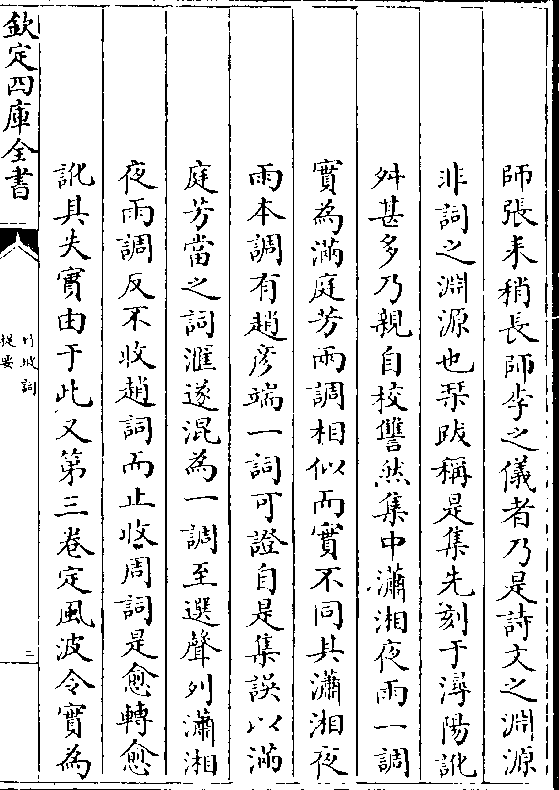 師張耒稍長師李之儀者乃是詩文之淵源
非詞之淵源也栞跋稱是集先刻于潯陽訛
舛甚多乃親自校讐然集中瀟湘夜雨一調
實為滿庭芳兩調相似而實不同其瀟湘夜
雨本調有趙彦端一詞可證自是集誤以滿
庭芳當之詞滙遂混為一調至選聲列瀟湘
夜雨調反不收趙詞而止收周詞是愈轉愈
訛其失實由于此又第三卷定風波令實為
欽定四庫全書
竹坡詞
提要
三